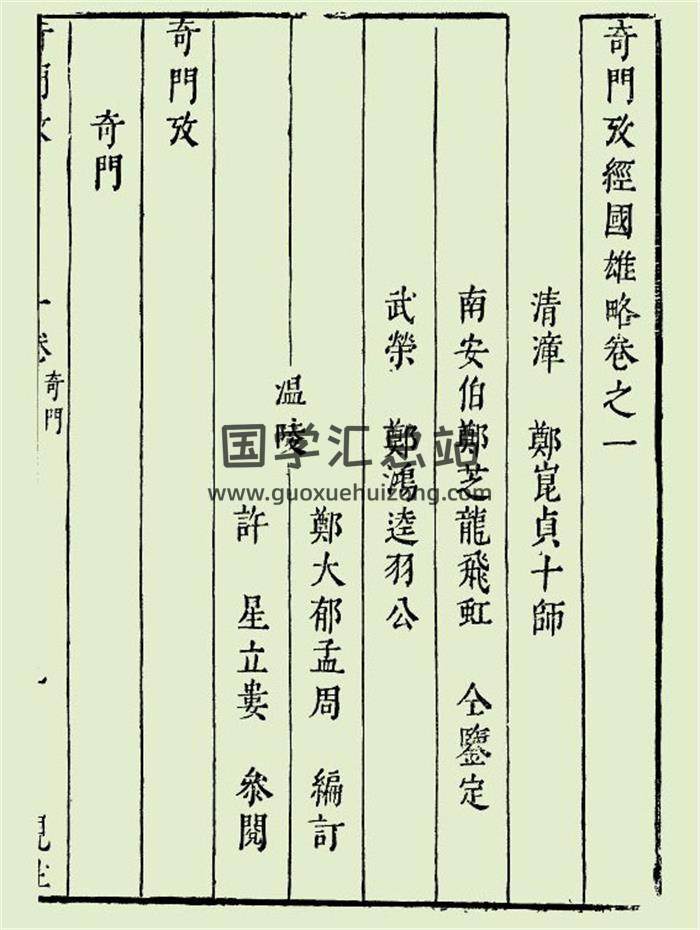 奇門攷經國雄略卷之一
清漳 鄭崑貞十師
南安伯鄭芝龍飛虹 仝鑒定
武榮 鄭鴻逵羽公
溫陵
鄭大郁孟周 編訂
許 星立婁 叅閱
奇門攷
奇門
奇門攷
一卷
奇門
观社
国学汇总站
www.guoxuehuizong.com